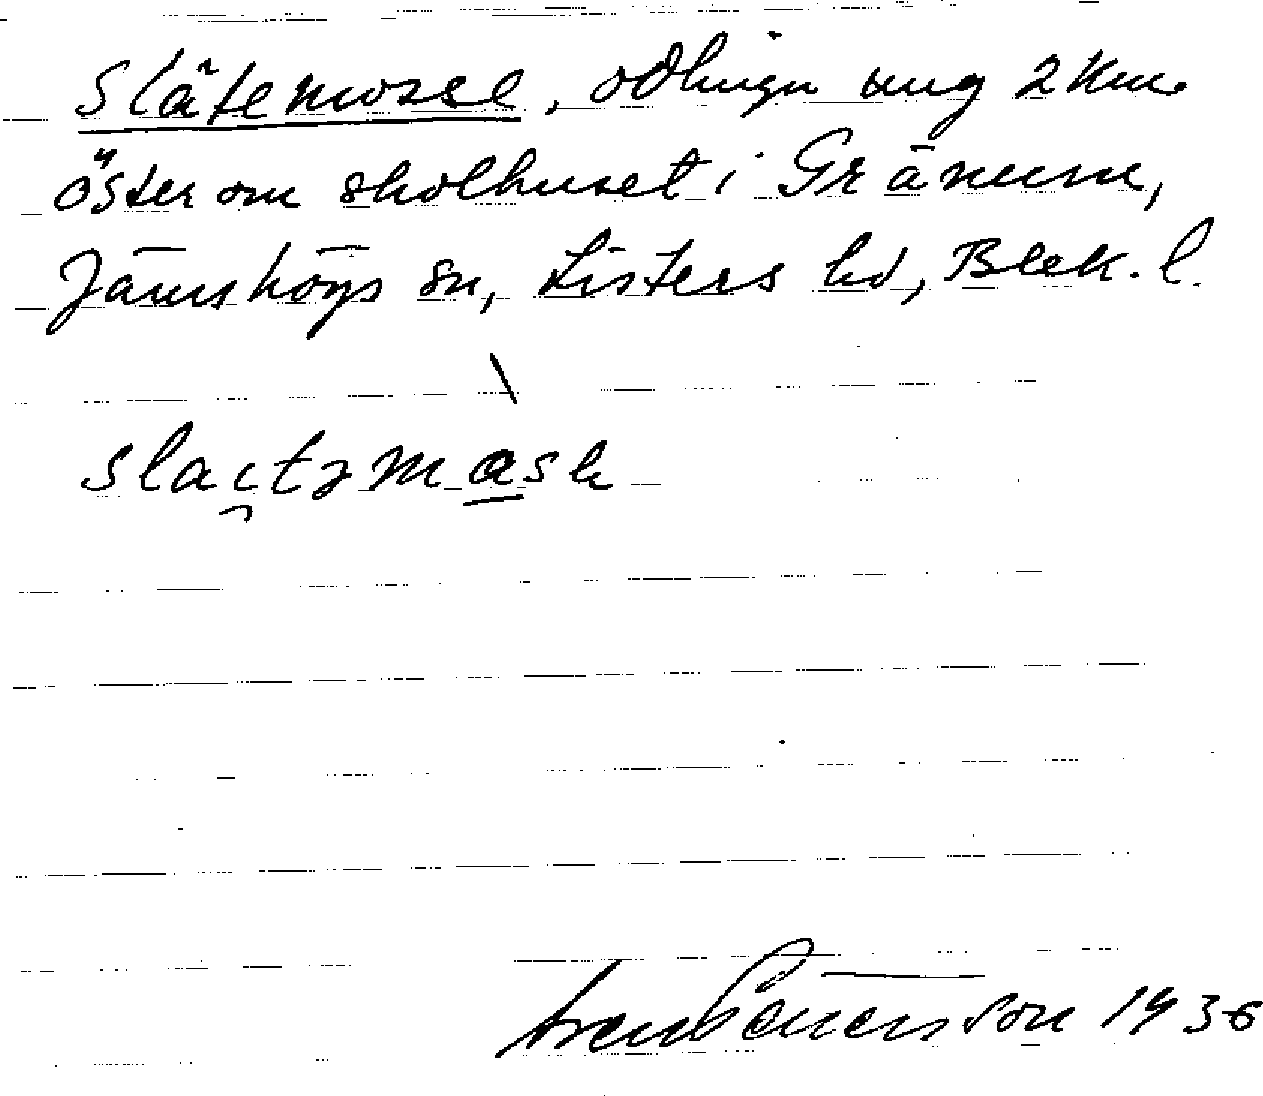 Slätemosse, odlingn ung 2 km.
öster om skolhuset i Gränum,
Jämshögs sn, Listers hd, Blek. l.
slai̯təmask
Benson 1936